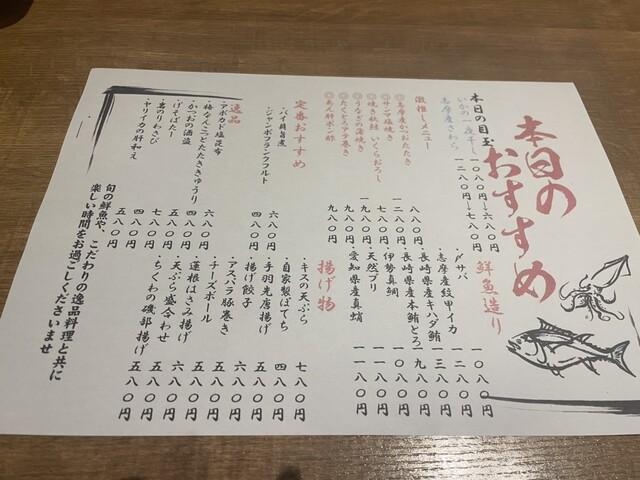 本日の
おすすめ
本日の目玉
いかの一夜干し 一〇八〇円→六八〇円
志摩産さわら 一二八〇円→七八〇円
激推しメニュー
志摩産かつおたたき 八八〇円
サンマ塩焼き 一二八〇円
焼き秋鮭 いくらおろし 七八〇円
うなぎの蒲焼き 一九八〇円
たくとろアテ巻き 九八〇円
あん肝ポン酢 九八〇円
定番おすすめ
・バイ貝旨煮 六八〇円
・ジャンボフランクフルト 四八〇円
逸品
・アボカド塩昆布 六八〇円
・梅なんこつとたたききゅうり 四八〇円
・かつおの酒盗 五八〇円
・げそばたー 七八〇円
・裏のりわさび 四八〇円
・ヤリイカの肝和え 五八〇円
鮮魚造り
・〆サバ 一〇八〇円
・志摩産紋甲イカ 一二八〇円
・長崎県産キハダ鮪 一三八〇円
・長崎県産本鮪とろ 一九八〇円
・伊勢真鯛 一〇八〇円
・天然ブリ 一一八〇円
・愛知県産真蛸 一一八〇円
揚げ物
・キスの天ぷら 七八〇円
・自家製ぽてち 四八〇円
・手羽先唐揚げ 五八〇円
・揚げ餃子 五八〇円
・アスパラ豚巻き 六八〇円
・チーズボール 五八〇円
・蓮根はさみ揚げ 五八〇円
・天ぷら盛合わせ 六八〇円
・ちくわの磯部揚げ 五八〇円
旬の鮮魚や、こだわりの逸品料理と共に
楽しい時間をお過ごしくださいませ